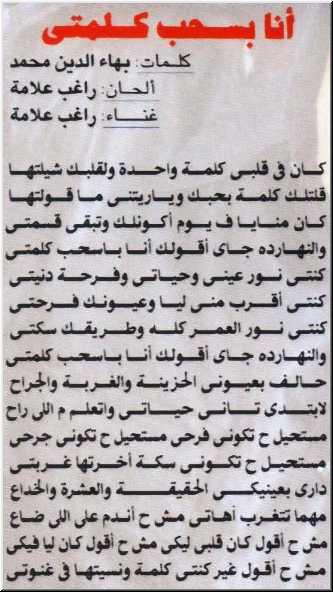 أنا بسحب كلمتى
كلمات: بهاء الدين محمد
ألحان: راغب علامة
غناء: راغب علامة
كان فى قلبى كلمة واحدة ولقلبك شيلتها
قلتلك كلمة بحبك وياريتنى ما قولتها
كان منايا ف يوم أكونلك وتبقى قسمتى
والنهارده جاى أقولك أنا باسحب كلمتى
كنتى نور عينى وحياتى وفرحة دنيتى
كنتى أقرب منى ليا وعيونك فرحتى
كنتى نور العمر كله وطريقك سكتى
والنهارده جاى أقولك أنا باسحب كلمتى
حالف بعيونى الحزينة والغربة والجراح
لابتدى تانى حياتى واتعلم م اللى راح
مستحيل ح تكونى فرحى مستحيل ح تكونى جرحى
مستحيل ح تكونى سكة أخرتها غربتى
دارى بعينيكى الحقيقة والعشرة والخداع
مهما تتغرب أهاتى مش ح أندم على اللى ضاع
مش ح أقول كان قلبى ليكى مش ح أقول كان ليا فيكى
مش ح أقول غير كنتى كلمة ونسيتها فى غنوتى